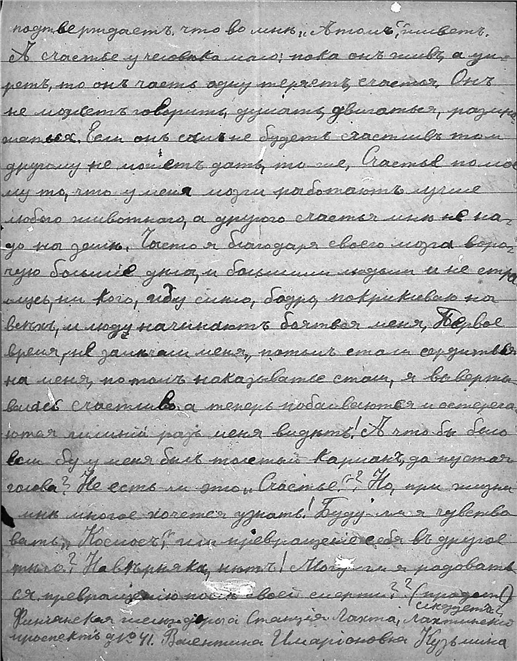 подтверждаетъ, что во мнѣ „Атомъ“, живетъ.
А счастье у человѣка мало: пока онъ живъ, а ум-
ретъ, то онъ часть одну теряетъ, счастья. Онъ
не можетъ говорить, думать, двигаться,
Если онъ самъ не будетъ счастливъ то и
другому не можетъ дать, то же, Счастье по мое
му то, что у меня мозги работаютъ лучше
любого животного, а другого счастья мнѣ не на-
до на землѣ. Часто я благодаря своего мозга воро-
чую большіе дѣла, и большими людьми и не стра
шусь, ни кого, иду смѣло, бодро, покрикиваю на
всѣхъ, и люди начинаютъ бояться меня, Первое
время, не замѣчали меня, потомъ стали сердиться
на меня, потомъ наказывать стали, я
счастливо а теперь побаиваются и остерега-
ются лишній разъ меня видѣть! А что бы было
если бы у меня былъ толстый карманъ, да пустая
голова? Не есть ли это „Счастье“? Но, при жизни
мнѣ многое хочется узнать! Буду ли я чувство
вать „Космосъ“, или превращеніе себя въ другое
тѣло? Навѣрняка, нѣтъ! Могу ли я радовать
ся превращенію послѣ своей смерти?? (продол)
слѣдуетъ
Финлянская желѣз. дорога Станція Лахта, Лахтинскій
проспектъ д № 41. Валентина Иларіоновна Кузьмина